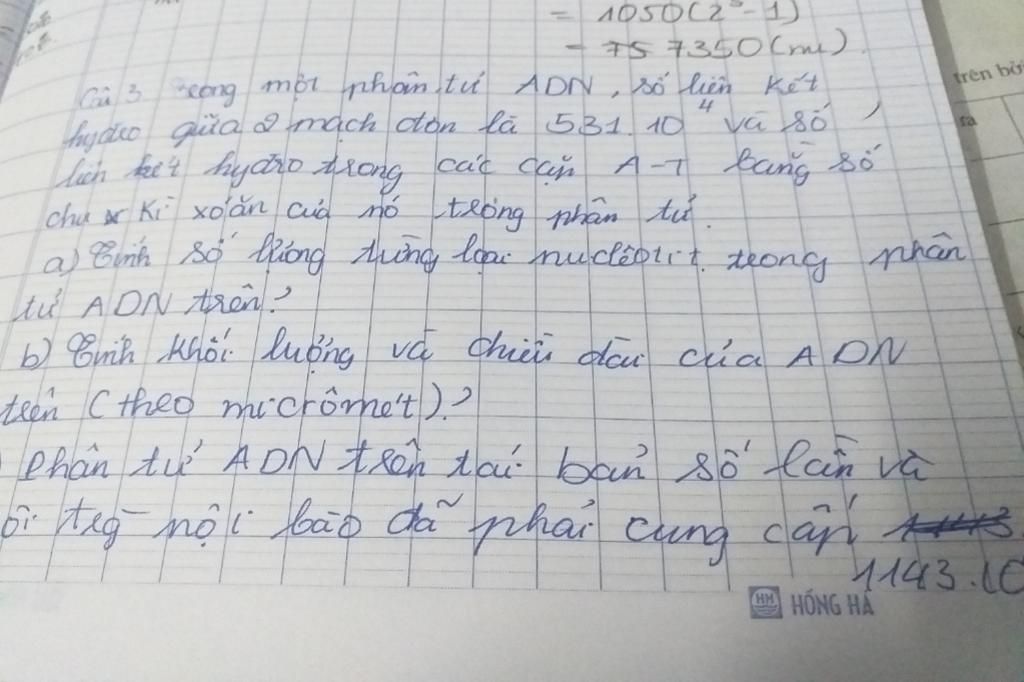 = 1050(2³-1)
= 757350(nu)
Câu 3 trong một phân tử ADN, số liên kết
hyđro giữa 2 mạch đơn là 531.10⁴ và số
liên kết hyđro trong các cặp A-T bằng số
chu kì xoắn của nó trong phân tử.
a) Tính số lượng từng loại nuclêôtit trong phân
tử ADN trên?
b) Tính khối lượng và chiều dài của ADN
trên (theo micrômét)?
Phân tử ADN trên tái bản số lần và
ôi trg nội bào đã phải cung cấp
1143.10
HH HỒNG HÀ
trên bờ
ra